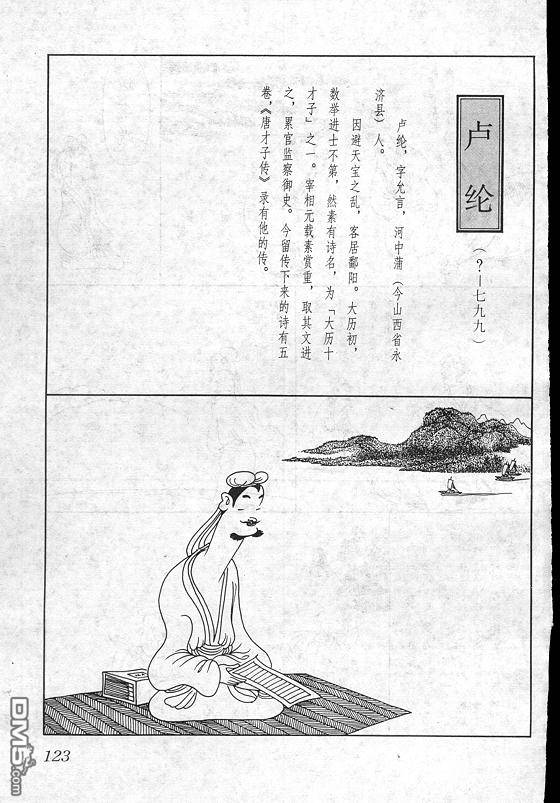 卢纶
（？—七九九）
卢纶，字允言，河中蒲（今山西省永
济县）人。
因避天宝之乱，客居鄱阳。大历初，
数举进士不第，然素有诗名，为「大历十
才子」之一。宰相元载素赏重，取其文进
之，累官监察御史。今留传下来的诗有五
卷，《唐才子传》录有他的传。
123
DM5.com